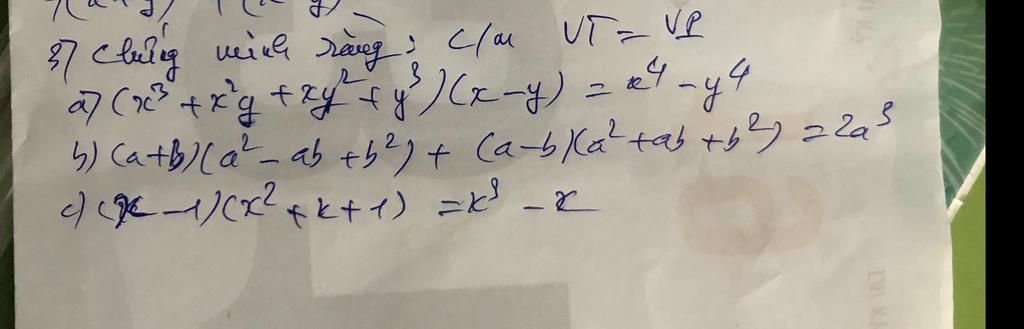 3) Chứng minh rằng: C/m VT = VP
a) (x³ + x²y + xy² + y³)(x - y) = x⁴ - y⁴
b) (a+b)(a² - ab + b²) + (a-b)(a² + ab + b²) = 2a³
c) (x - 1)(x² + x + 1) = x³ - x